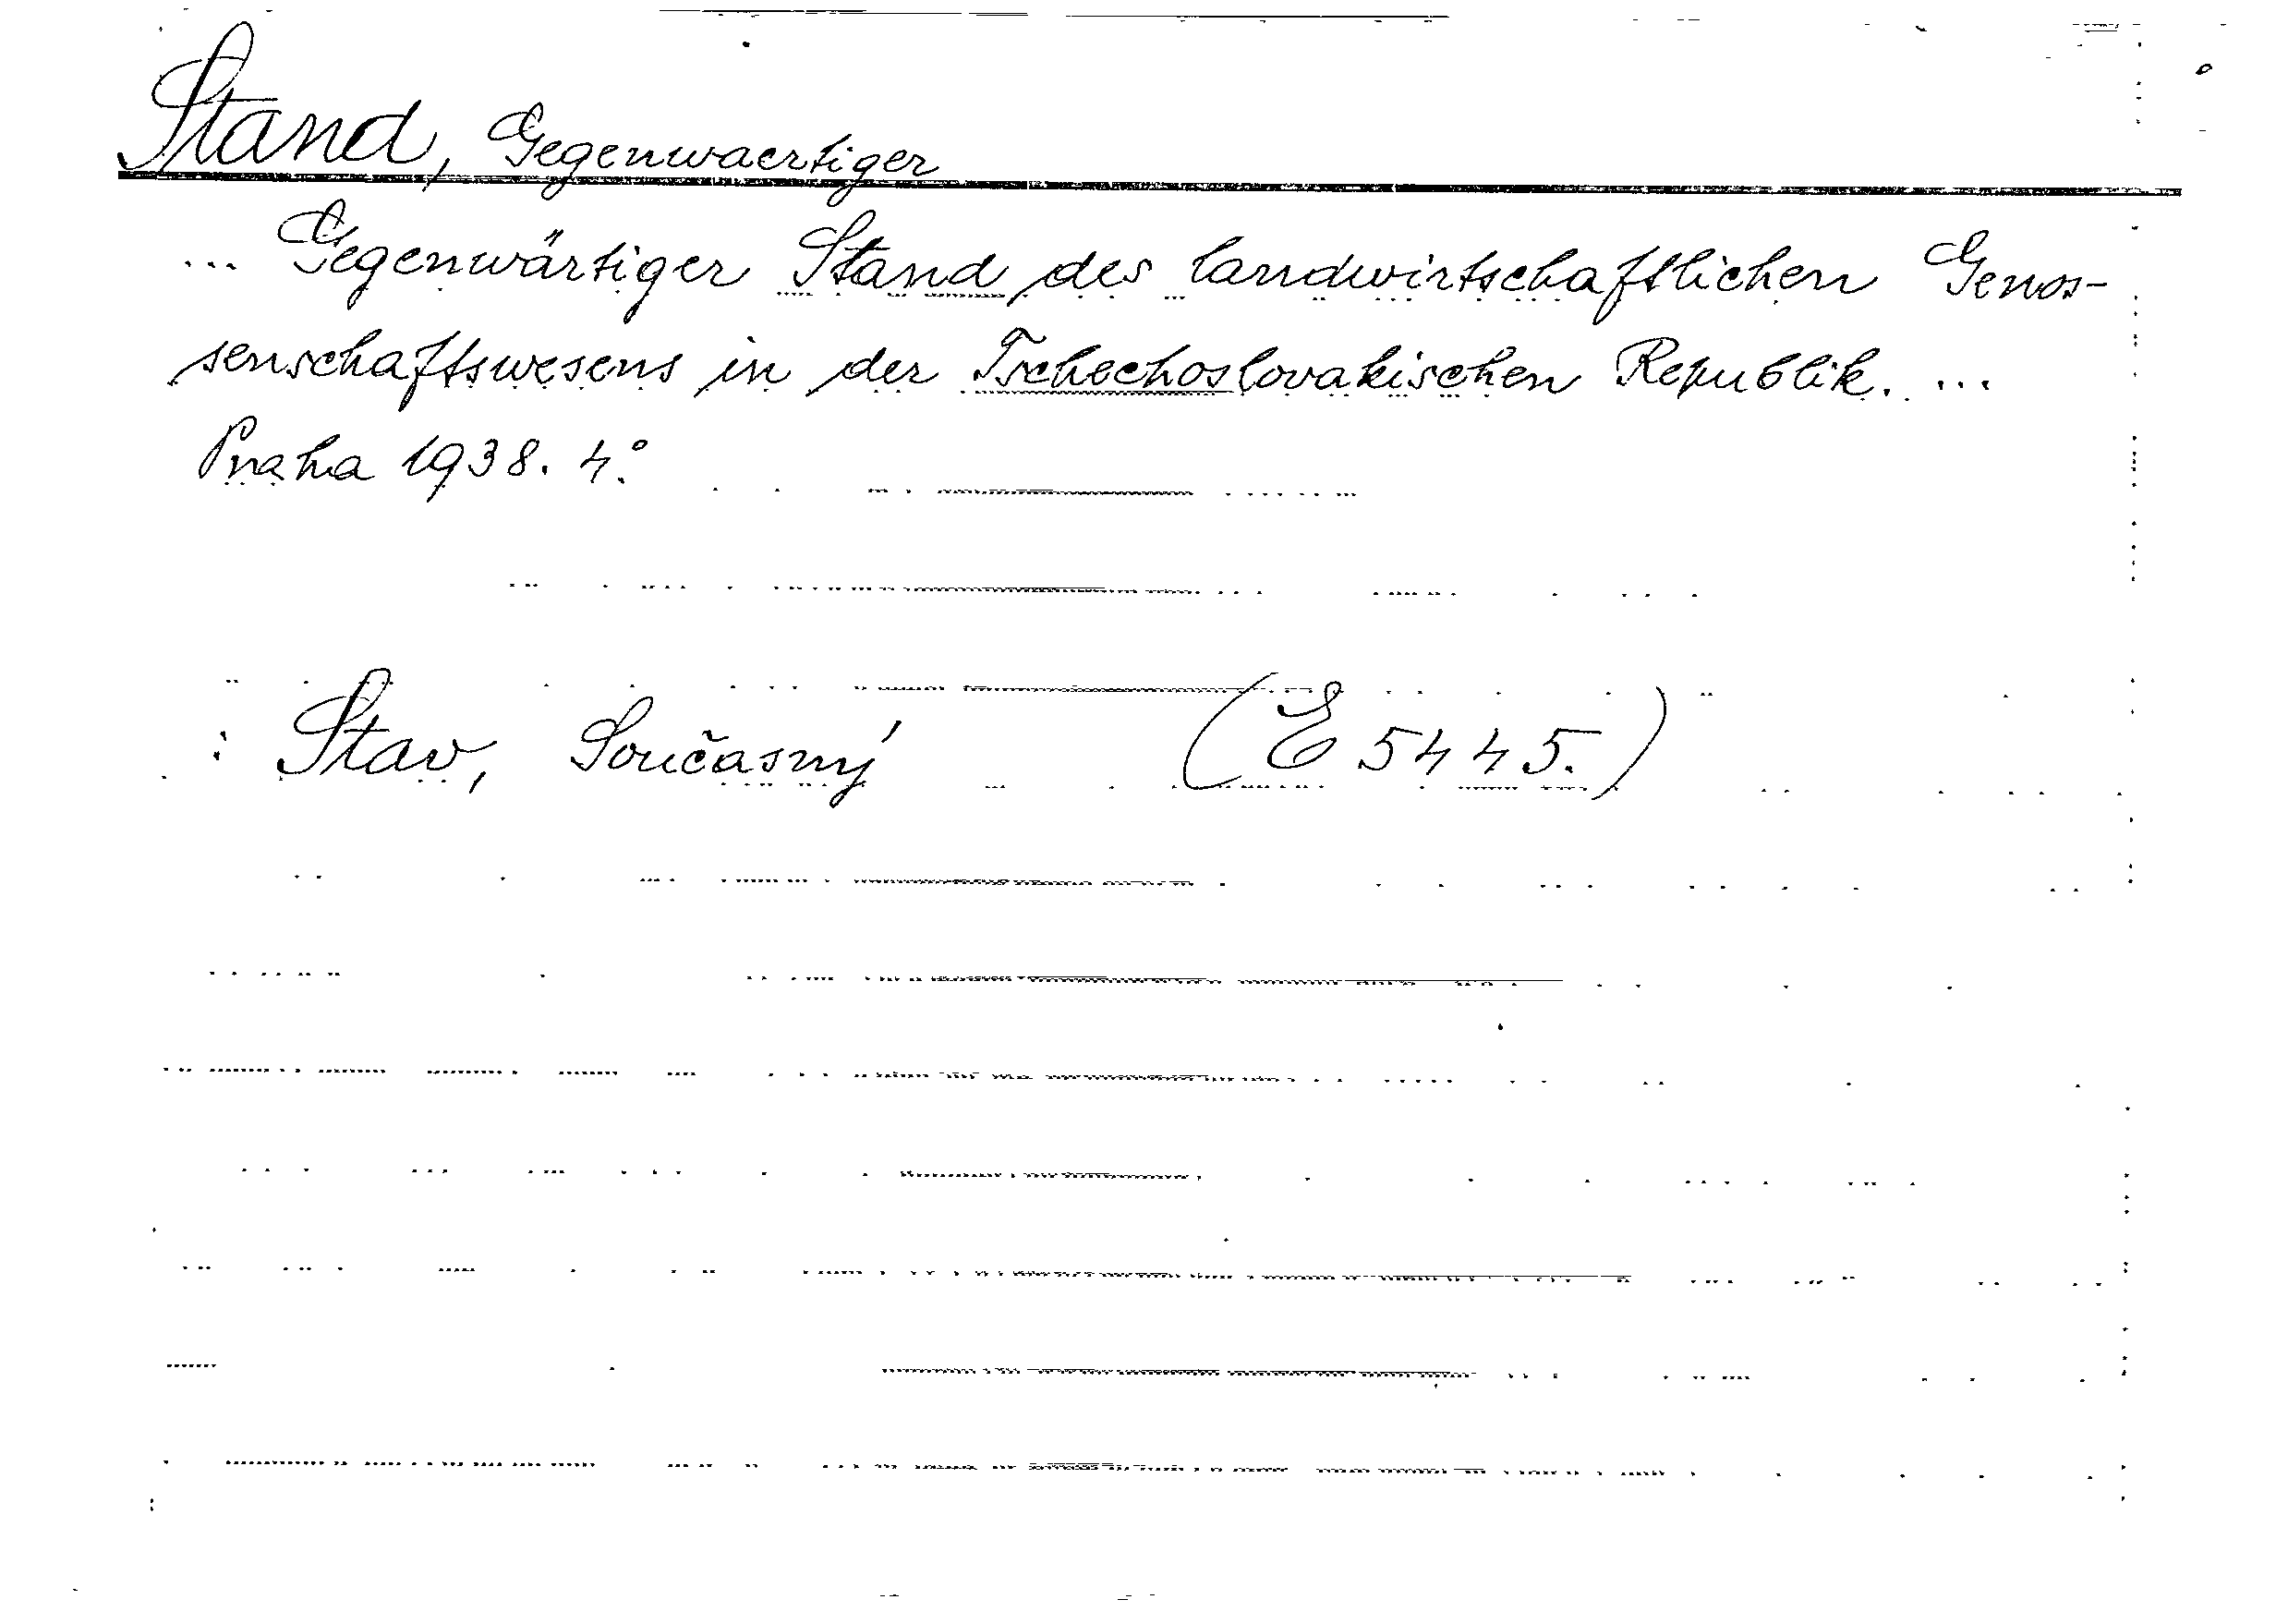 Stand, Gegenwaertiger
... Gegenwärtiger Stand des landwirtschaftlichen Genos-
senschaftswesens in der Tschechoslovakischen Republik. ...
Praha 1938. 4°.
: Stav, Současný (E 5445.)